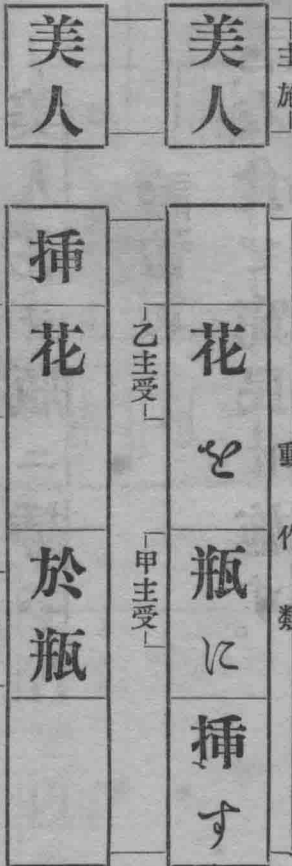 主施
動作類
美人
花を瓶に挿す
乙主受
甲主受
美人
挿花於瓶